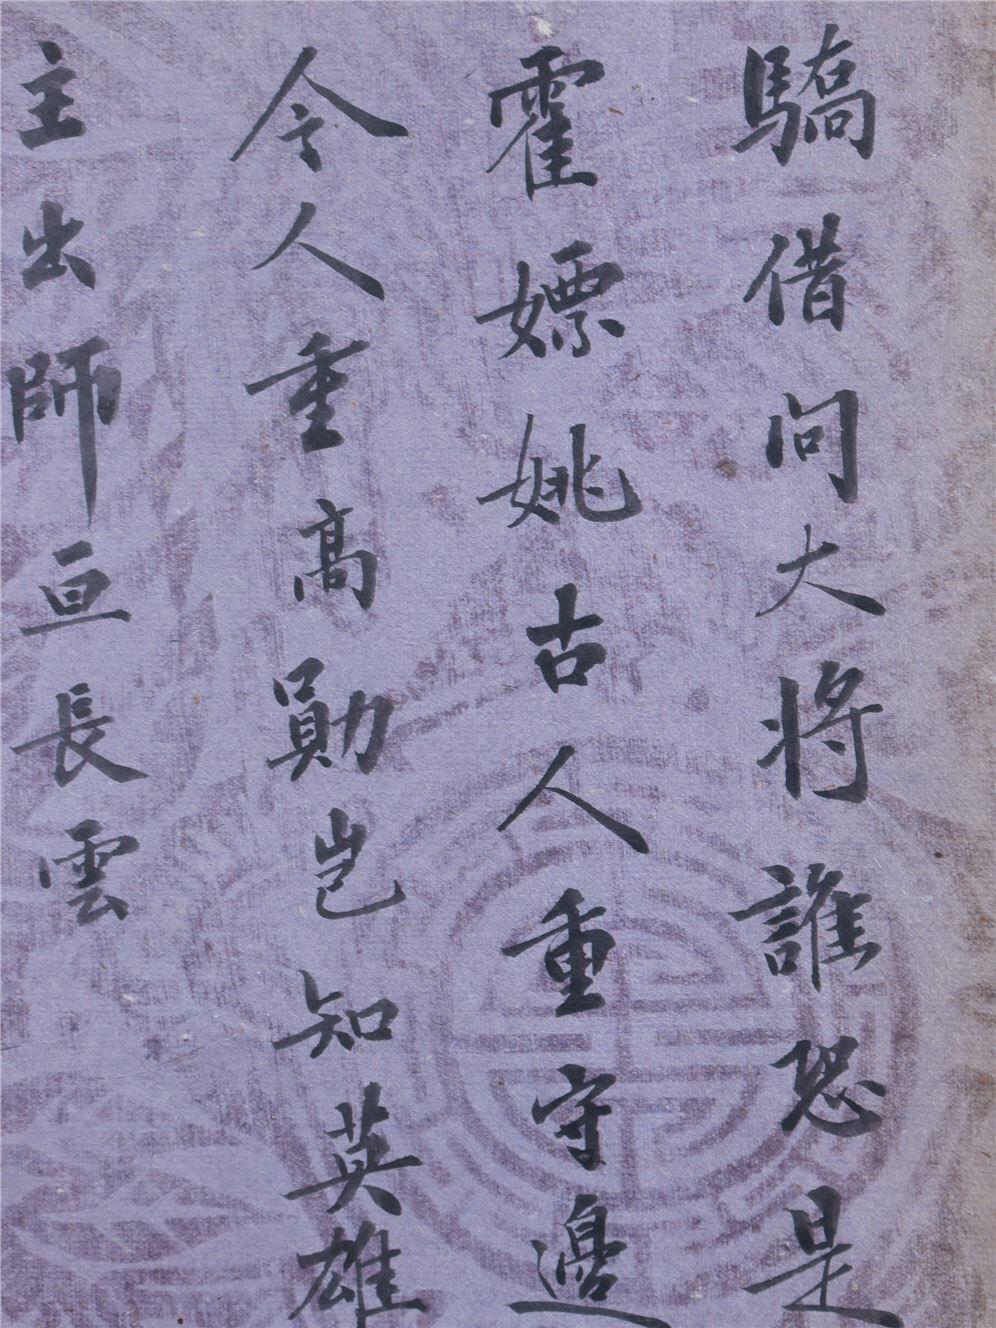 驕借问大将誰恐是
霍嫖姚古人重守邊
令人重高勛豈知英雄
主出師亘長雲